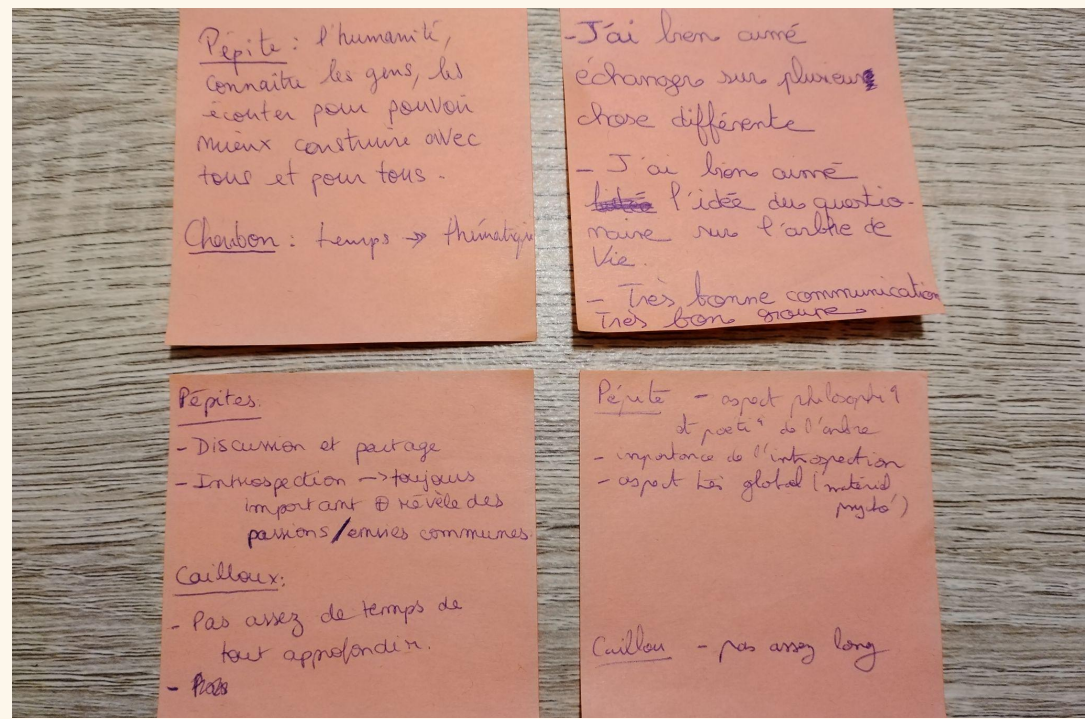 Pépite : l'humanité,
connaître les gens, les
écouter pour pouvoir
mieux construire avec
tous et pour tous.
Charbon : temps → thématiqu
- J'ai bien aimé
échanger sur plusieurs
chose différente
- J'ai bien aimé
l'idée du questio-
naire sur l'arbre de
Vie.
- Très bonne communication
Très bon groupe.
Pépites.
- Discussion et partage
- Introspection -> toujours
important ⊕ révèle des
passions/envies communes.
Cailloux:
- Pas assez de temps de
tout approfondir.
-
Pépite - aspect philosophiq
et poétiq de l'arbre
- importance de l'introspection
- aspect très global (matériel
Caillou - pas assez long